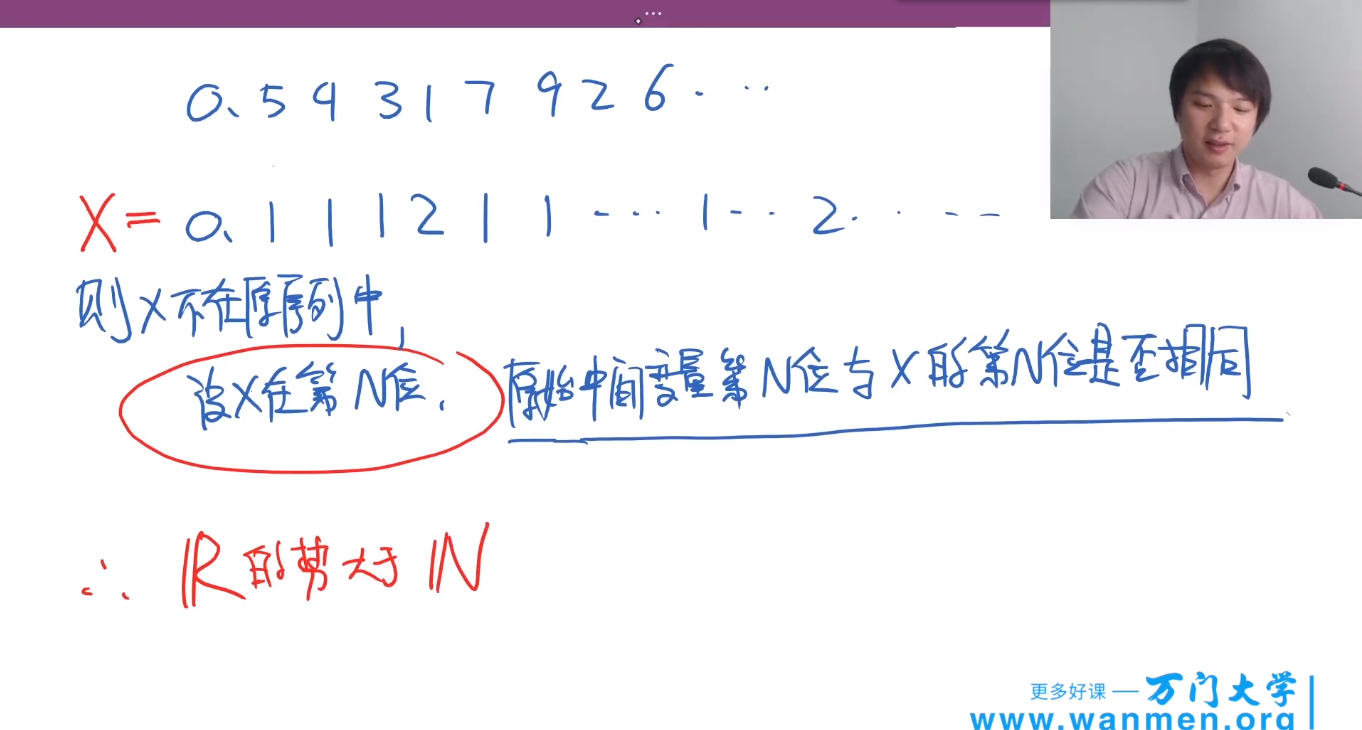 0.59317926...
X=0.111211...1...2......
则X不在原序列中,
设X在第N位. 原始中间变量第N位与X的第N位是否相同
∴ ℝ的势大于ℕ
更多好课 — 万门大学
www.wanmen.org